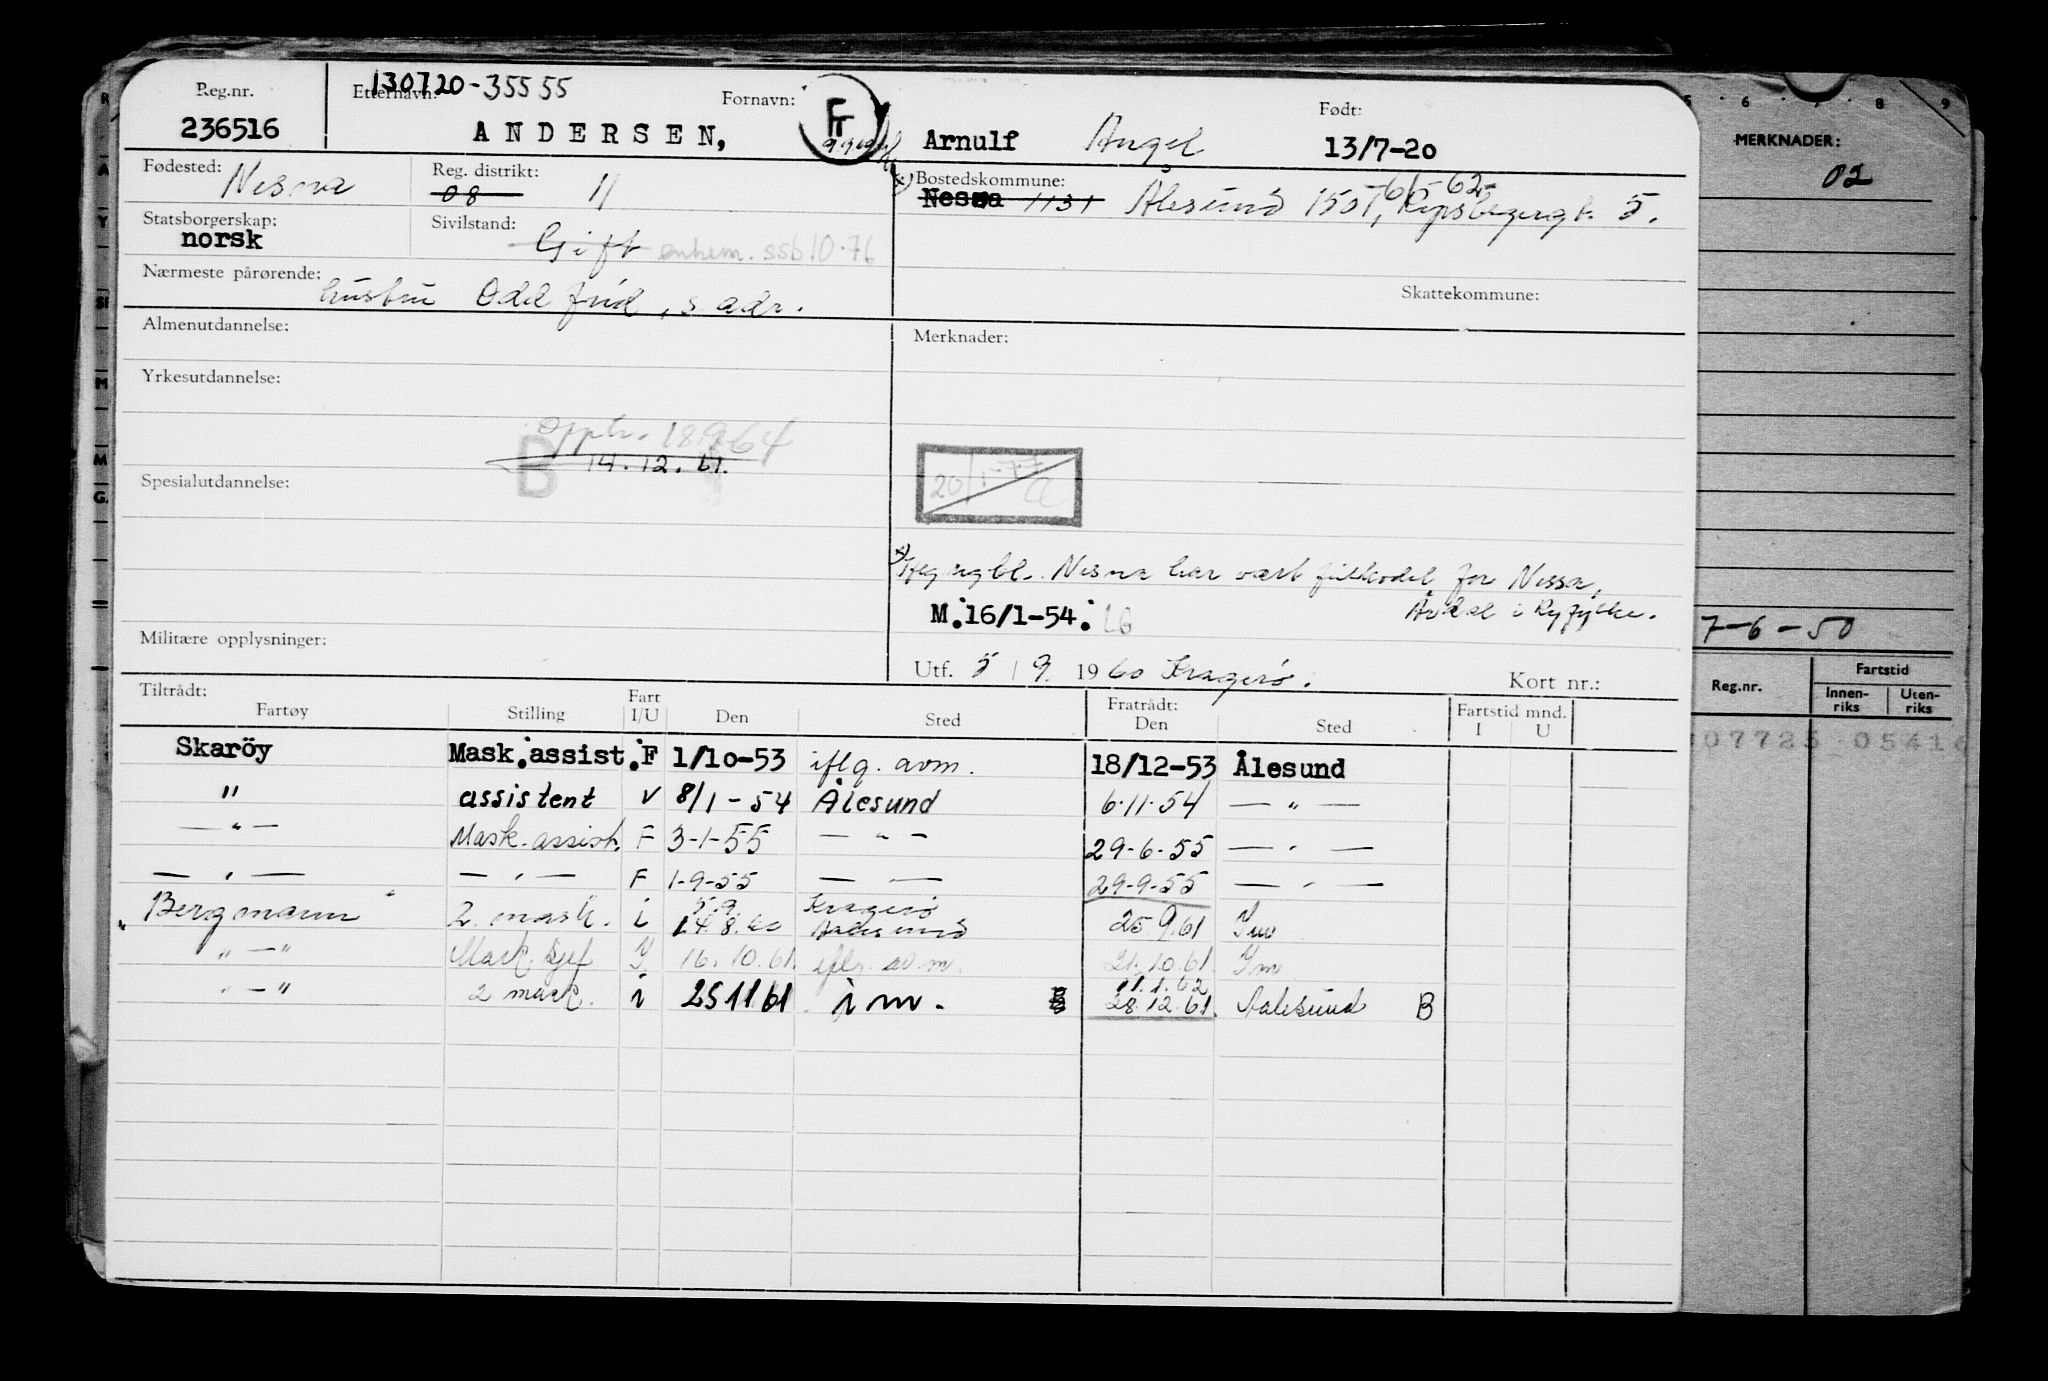 Reg.nr. 236516
Etternavn: 130720-35555
ANDERSEN,
Fornavn: Arnulf Angel
FT
Født: 13/7-20
Fødested: Nesna
Reg. distrikt: 08 11
x) Bostedskommune: Nessa 1131 Ålesund 1501, Ripsbærgt. 5.
Statsborgerskap: norsk
Sivilstand: Gift enkem. ssb 10-76
Nærmeste pårørende: hustru Oddfrid, s adr.
Skattekommune:
Almenutdannelse:
Merknader:
Yrkesutdannelse:
Opph. 18.9.64
B 14.12.61.
Spesialutdannelse:
20/1-77 a
x) Iflg. regbl. Nesna har vært feilkodet for Nessa,
Årdal i Ryfylke.
M.16/1-54. LG
Militære opplysninger:
Utf. 5/9. 1960 Kragerø.
Kort nr.:
Tiltrådt: Fartøy Stilling Fart I/U Den Sted Fratrådt: Den Sted Fartstid mnd. I U
Skaröy Mask.assist. F 1/10-53 iflg. avm. 18/12-53 Ålesund
" assistent V 8/1-54 Ålesund 6.11.54 — " —
— " — Mask.assist. F 3-1-55 — " — 29-6-55 — " —
— " — — " — F 1-9-55 — — 29-9-55 — " —
5.9. Kragerø
"Bergmann" 2. mask. i 14.8.60 Aalesund 25.9.61 Im
" — " Mask.sjef Y 16.10.61. iflg. av.m. 21.10.61. Ym
11.1.62
" — " 2 mask. i 25 11 61 i m. 28.12.61. Aalesund B
5 6 7 8 9
MERKNADER:
02
7-6-50
Reg.nr. Fartstid
Innenriks Utenriks
07725 05416
R
A
Y
SI
M
M
G.